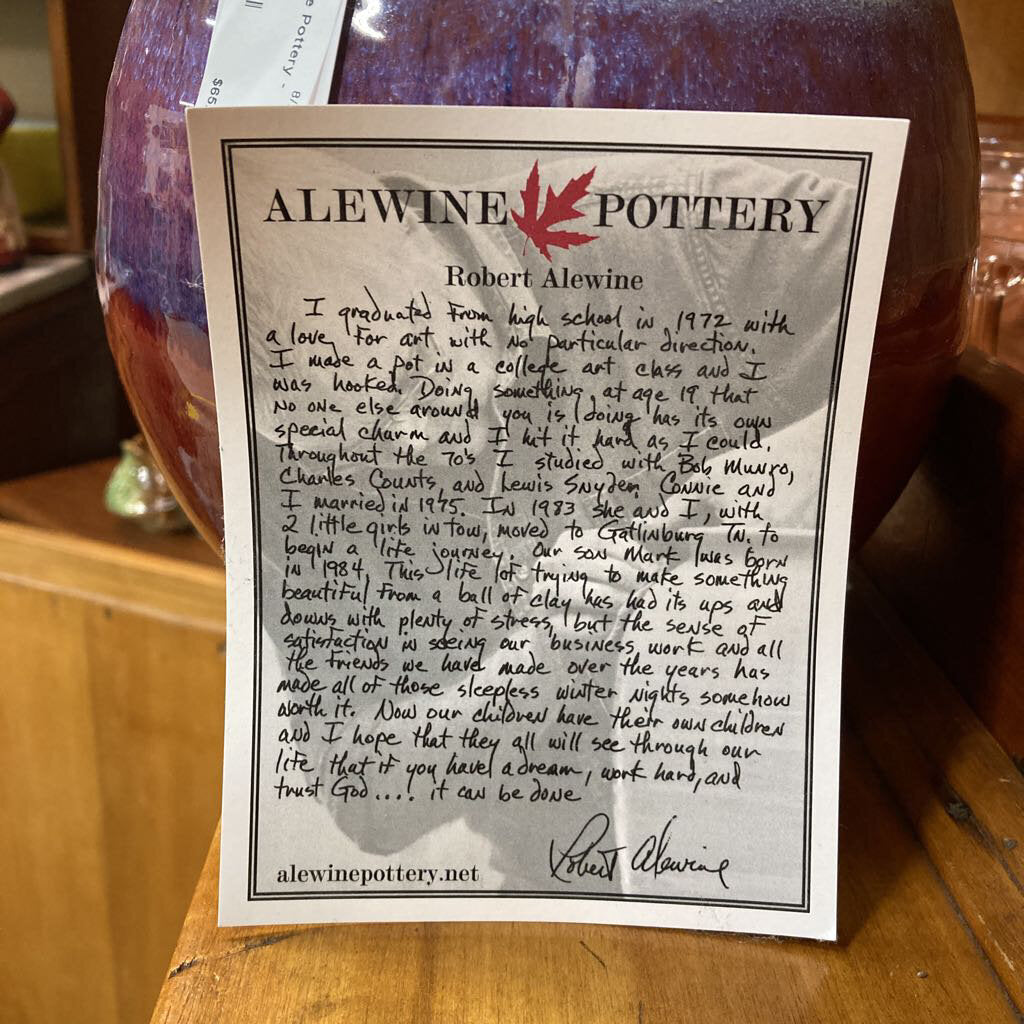 e Pottery - 8/
$65
ALEWINE POTTERY
Robert Alewine
I graduated From high school in 1972 with
a love For art with No particular direction.
I made a pot in a college art class and I
was hooked. Doing something at age 19 that
No one else around you is doing has its own
special charm and I hit it hard as I could.
Throughout the 70's I studied with Bob Munro,
Charles Counts, and Lewis Snyder. Connie and
I married in 1975. IN 1983 she and I, with
2 little girls in tow, moved to Gatlinburg TN. to
begin a life journey. Our son Mark was born
in 1984. This life of trying to make something
beautiful From a ball of clay has had its ups and
downs with plenty of stress, but the sense of
satisfaction in seeing our business, work and all
the friends we have made over the years has
made all of those sleepless winter nights somehow
worth it. Now our children have their own children
and I hope that they all will see through our
life that if you have a dream, work hard, and
trust God....! it can be done
Robert Alewine
alewinepottery.net